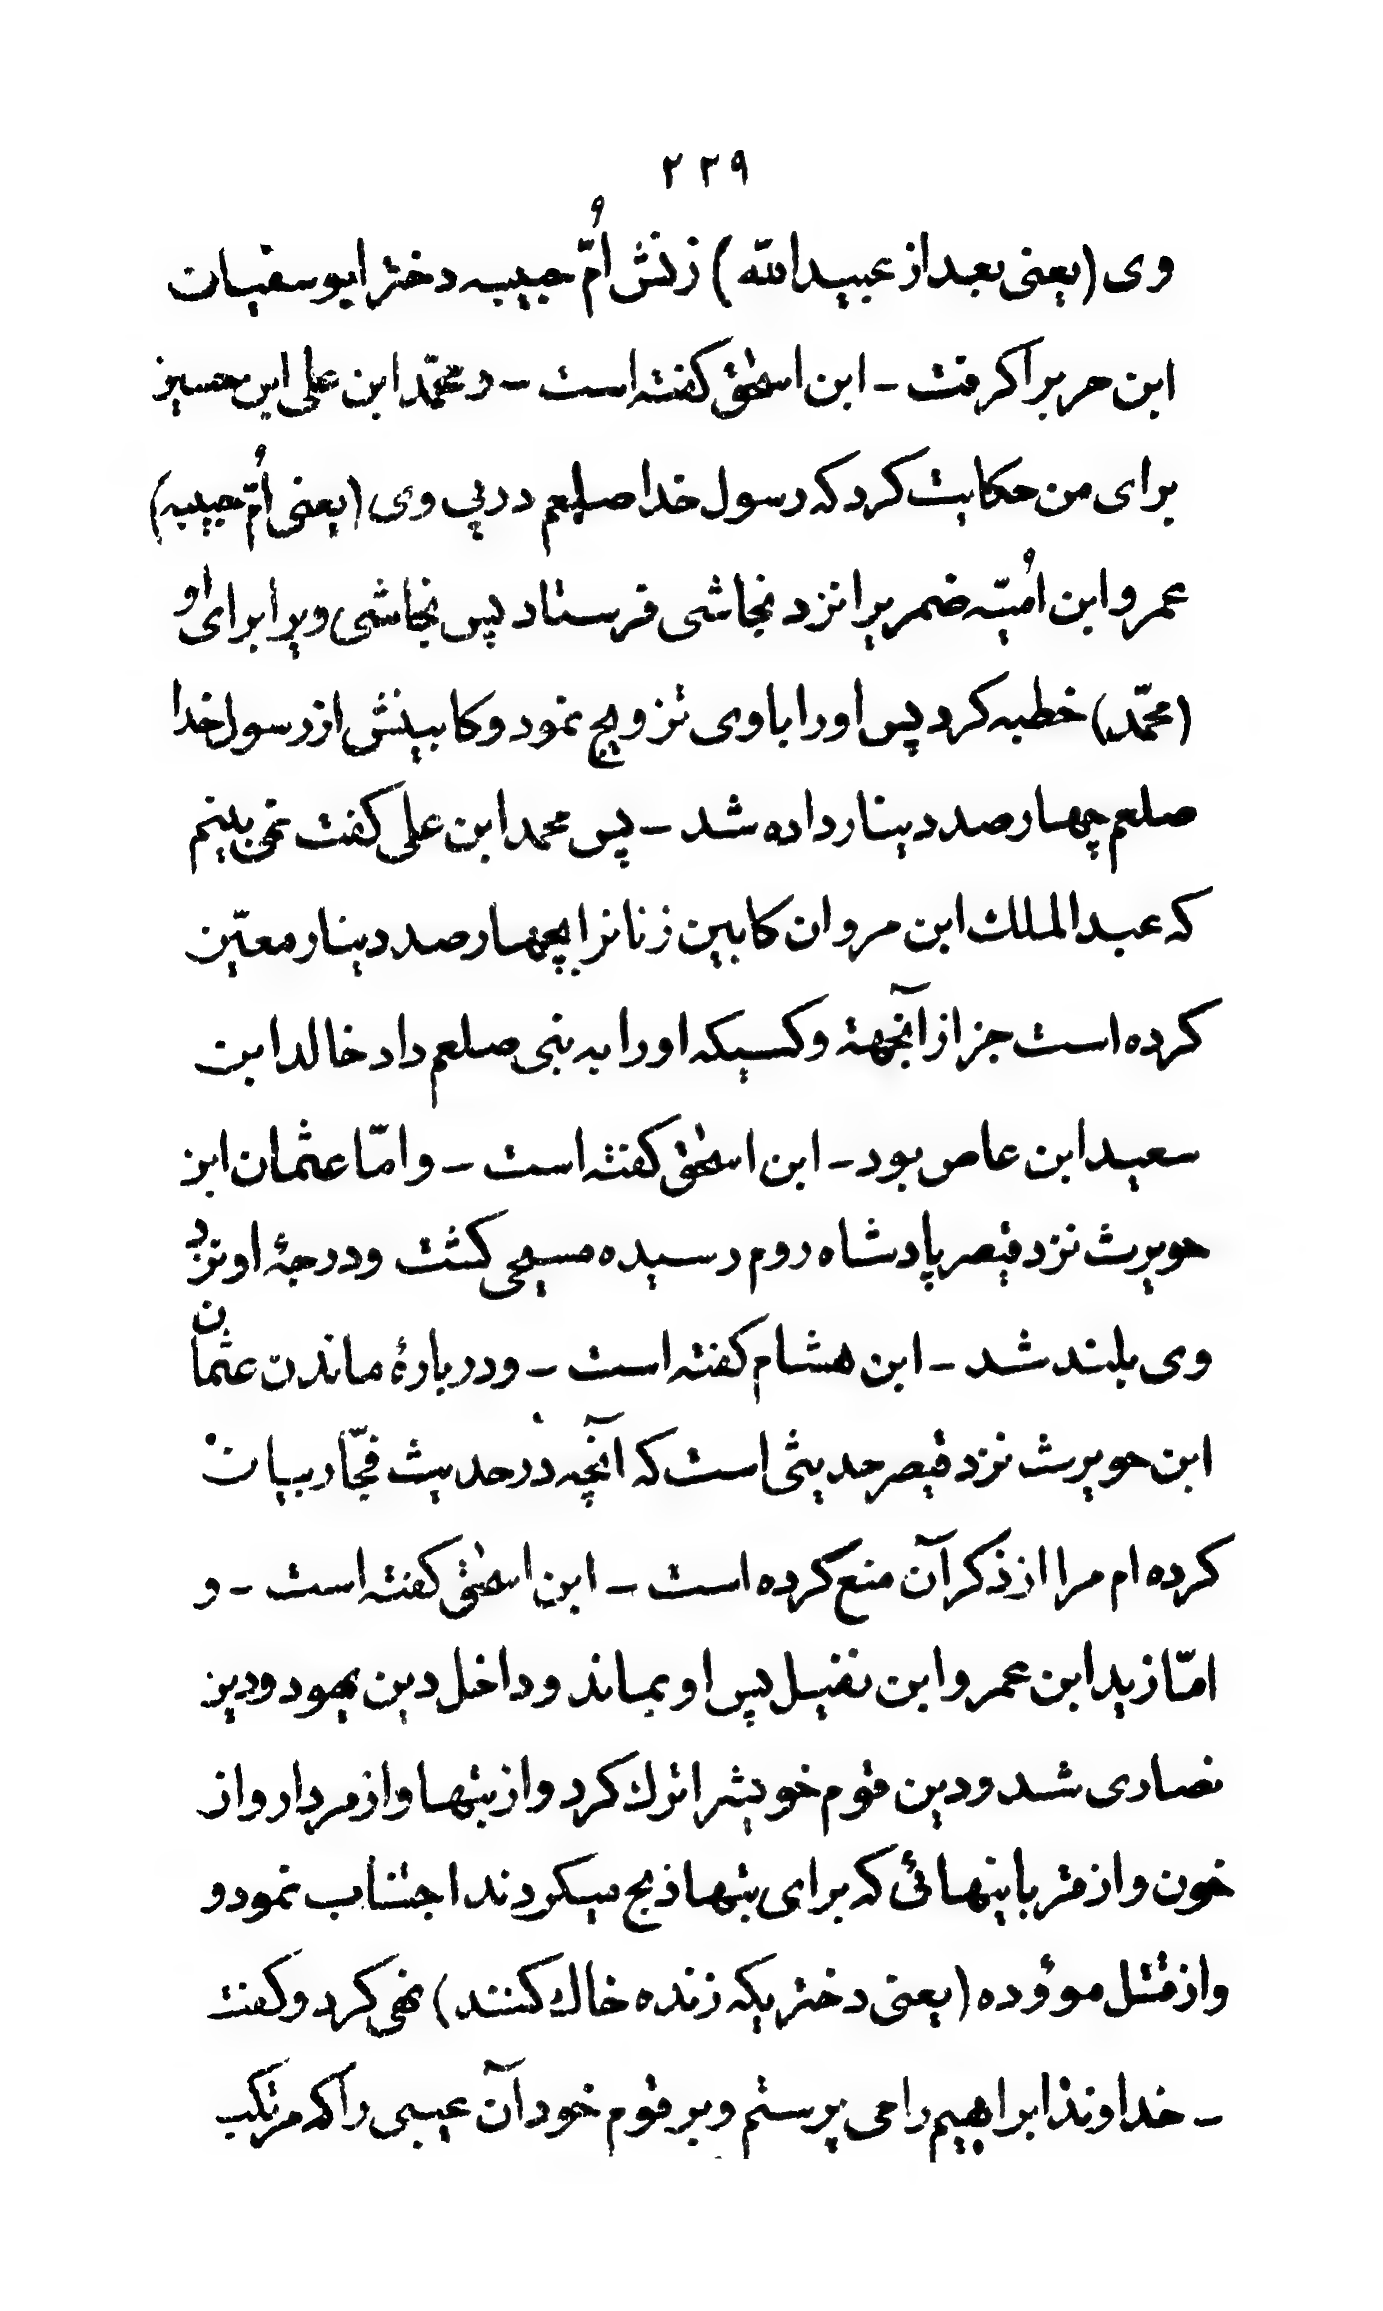 ٢٢٩
وی (یعنی بعد از عبیدالله) زنش اُمّ حبیبه دختر ابو سفیان
ابن حرب را گرفت - ابن اسحٰق گفته است - و محمّد ابن علی ابن حسین
برای من حکایت کرد که رسول خدا صلعم در پی وی (یعنی اُمّ حبیبه)
عمرو ابن اُمیّه ضمریرا نزد نجاشی فرستاد پس نجاشی ویرا برای او
(محمّد) خطبه کرد پس او را با وی تزویج نمود و کابینش از رسول خدا
صلعم چهار صد دینار داده شد - پس محمد ابن علی گفت نمی بینم
که عبد الملک ابن مروان کابین زنانرا بچهار صد دینار معیّن
کرده است جز از آنجهة و کسیکه او را به نبی صلعم داد خالد ابن
سعید ابن عاص بود - ابن اسحٰق گفته است - و امّا عثمان ابن
حویرث نزد قیصر پادشاه روم رسیده مسیحی گشت و درجهٔ او نزد
وی بلند شد - ابن هشام گفته است - و در بارهٔ ماندن عثمان
ابن حویرث نزد قیصر حدیثی است که آنچه در حدیث فجّار بیان
کرده ام مرا از ذکر آن منع کرده است - ابن اسحٰق گفته است - و
امّا زید ابن عمرو ابن نفیل پس او بماند و داخل دین یهود و دین
نصاری نشد و دین قوم خویشرا ترک کرد و از بتها و از مردار و از
خون و از قربانیهائی که برای بتها ذبح میکردند اجتناب نمود و
و از قتل موؤده (یعنی دختریکه زنده خاک کنند) نهی کرد و گفت
- خداوند ابراهیم را می پرستم و بر قوم خود آن عیبی را که مرتکب